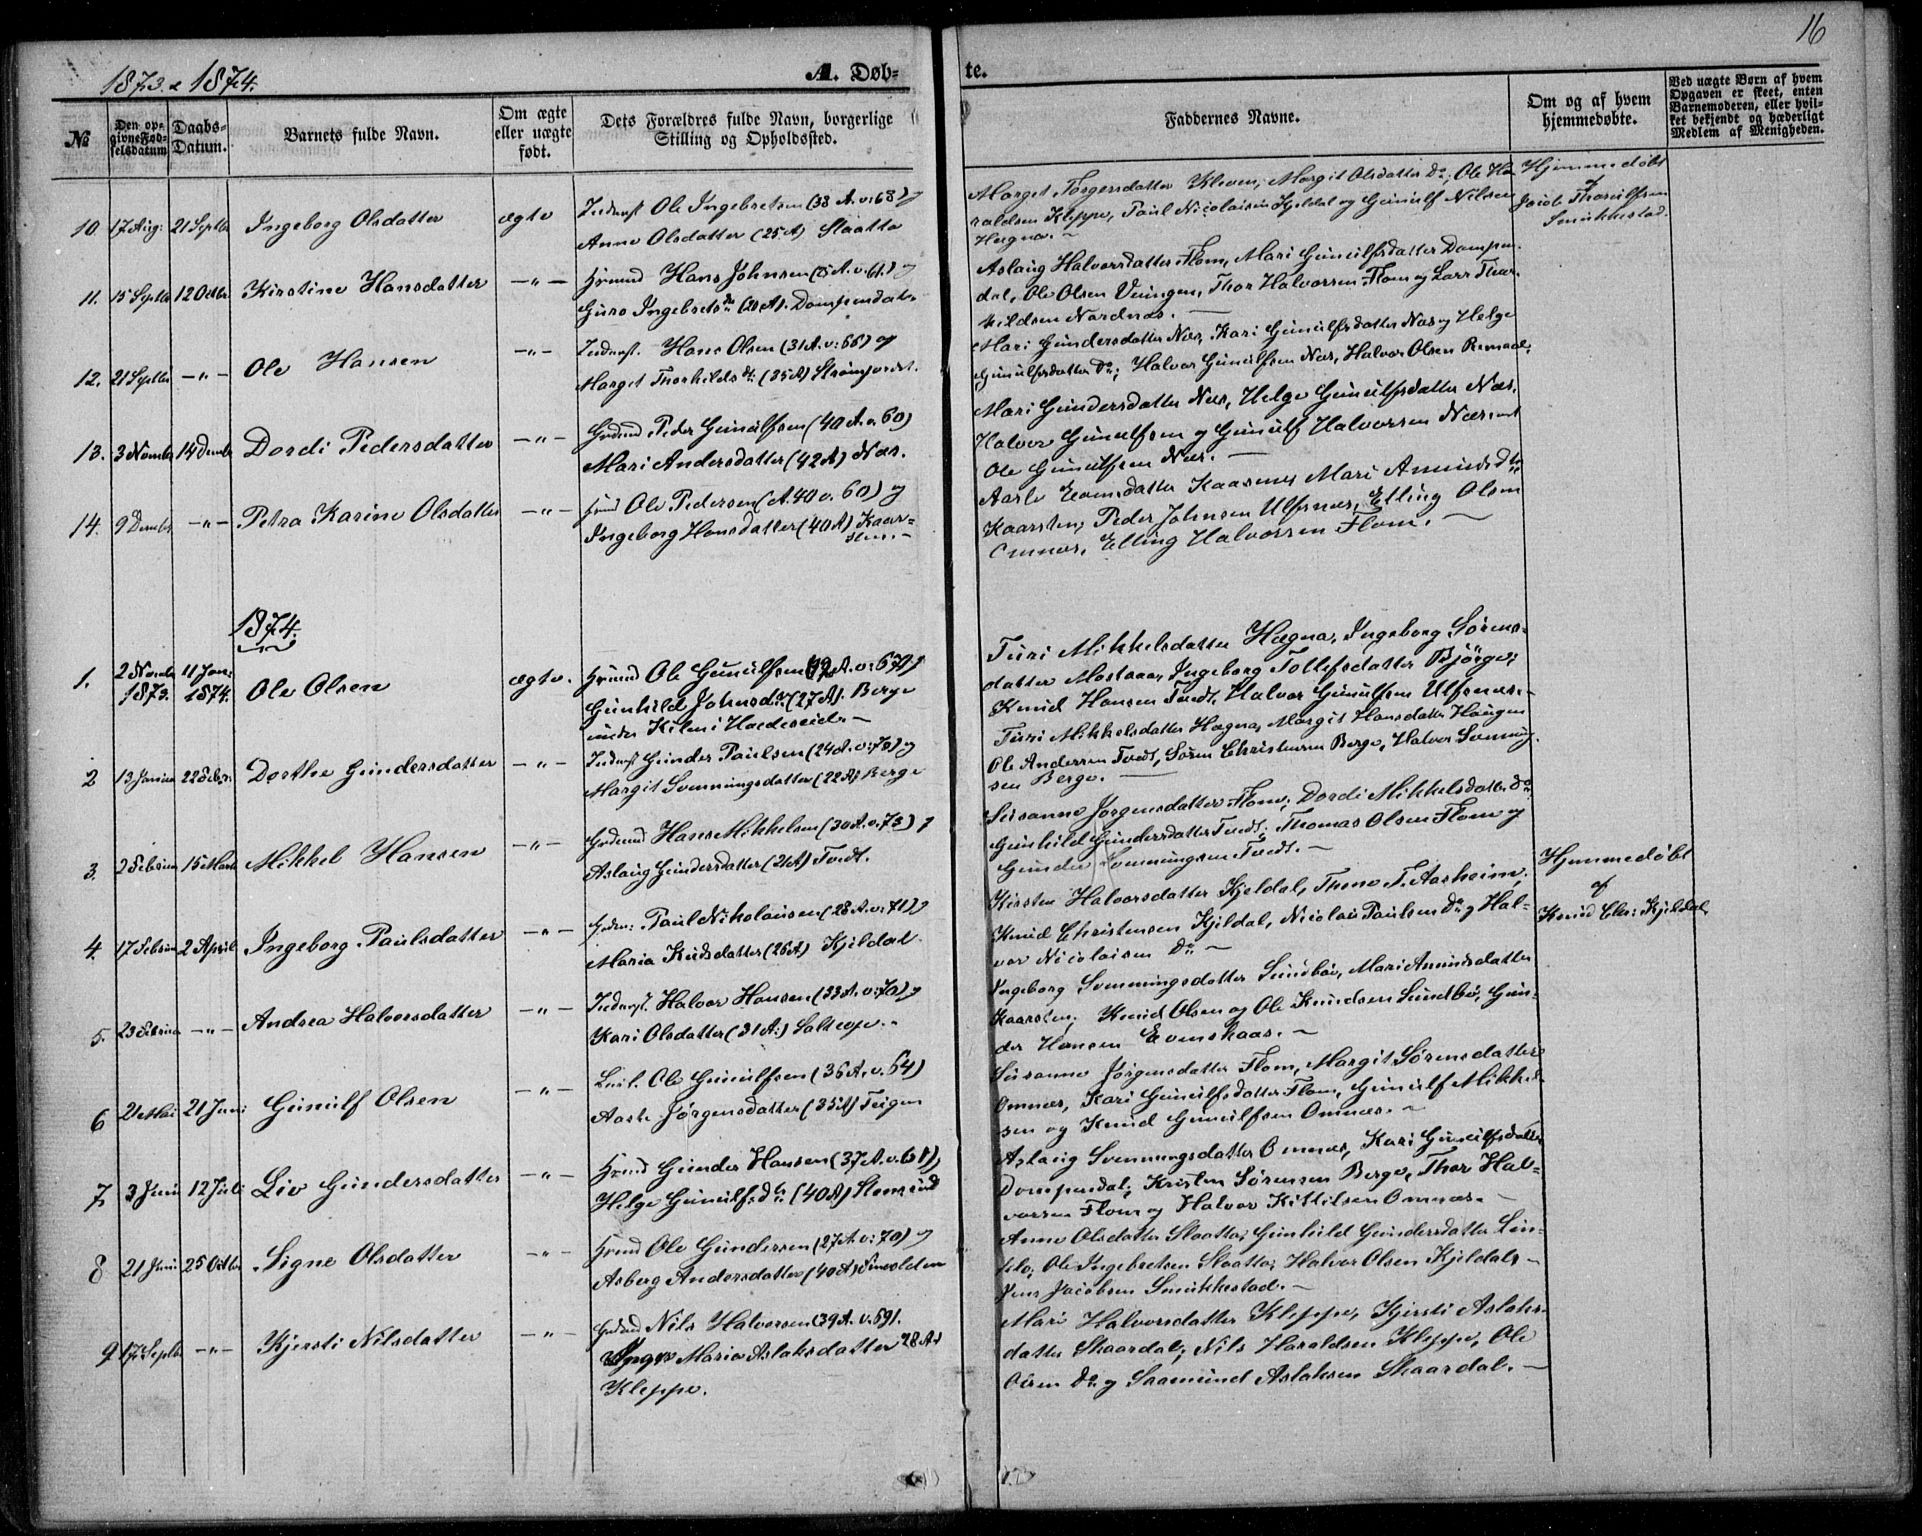 16
1873 & 1874.
A. Døb-
te.
No
Den op-
givne Fød-
selsdatum
Daabs-
Datum.
Barnets fulde Navn.
Om ægte
eller uægte
født.
Dets Forældres fulde Navn, borgerlige
Stilling og Opholdssted.
Faddernes Navne.
Om og af hvem
hjemmedøbte.
Ved uægte Børn af hvem
Opgaven er skeet, enten
Barnemoderen, eller hvil-
ket bekjendt og hæderligt
Medlem af Menigheden.
10. 17 Aug: 21 Septbr Ingeborg Olsdatter ægte
Inderst Ole Ingebretsen (33 A. v: 68) og
Anne Olsdatter (25 A) Slaatta
Margit Torgersdatter Kleven, Margit Olsdatter Do, Ole Ha-
raldsen Kleppe, Paul Nicolaisen Kjeldal og Gunulf Nilsen
Hægna. –
Hjemmedøbt
af
Jacob Thorsulfsen
Smukkestad.
11. 15 Septbr 12 Octbr. Kirstine Hansdatter –"–
Hans Johnsen (25 A. v: 61) og
Guro Ingebretsdr (20 A). Dampendal.
Aslaug Halvorsdatter Flom, Mari Gunulfsdatter Dompen-
dal, Ole Olsen Veningen, Thor Halvorsen Flom og Lars Thor-
kildsen Nordnæs. –
12. 21 Septbr –"– Ole Hansen –"–
Inderst. Hans Olsen (31 A. v: 66) og
Marget Thorkildsdr. (35 A) Strømfordet.
Mari Gundersdatter Næs, Kari Gunulfsdatter Næs og Helge
Gunulfsdatter Do; Halvor Gunulfsen Næs, Halvor Olsen
13. 3 Novmbr 14 Dcmbr Dordi Pedersdatter –"–
Peder Gunulfsen (40 A. v. 60)
Mari Andersdatter (42 A) Næs.
Mari Gundersdatter Næs, Helge Gunulfsdatter Næs,
Halvor Gunulfsen og Gunulf Halvorsen Næs samt
Ole Gunulfsen Næs. –
14. 9 Dcmbr –"– Petra Karine Olsdatter –"–
Ole Pedersen (A. 40 v. 60) og
Ingeborg Hansdatter (40 A) Kaar-
sten. –
Aasle Evensdatter Kaasenes, Mari Amundsdtr
Kaarsten, Peder Johnsen Ulfsnæs, Elling Olsen
Omnæs, Elling Halvorsen Flom. –
1874.
1. 2 Novbr 1873. 11 Jan: 1874. Ole Olsen ægte.
Ole Gunulfsen (42 A. v: 67) og
Gunhild Johnsdtr. (27 A). Berge
under Kilen i Hvideseid. –
Turi Mikkelsdatter Hægna, Ingeborg Sørens-
datter Mostaaa, Ingeborg Tollefsdatter Bjørge;
Knud Hansen Tvedt, Halvor Gunulfsen Ulfsnæs. –
2 13 Januar 22 Febr: Dorthe Gundersdatter –"–
Inderst Gunder Paulsen (24 A. v: 70) og
Margit Svenningsdatter (22 A) Berge
Turi Mikkelsdatter Hægna, Margit Hansdatter Haugen
Ole Andersen Tvedt, Søren Christensen Berge, Halvor Svenning-
sen Berge. –
3. 2 Februar 15 Marts Mikkel Hansen –"–
Hans Mikkelsen (30 A. v. 73) og
Aslaug Gundersdatter (21 A) Tvedt.
Susanne Jørgensdatter Flom, Dordi Mikkelsdatter Do.
Gunhild Gundersdatter Tvedt; Thomas Olsen Flom og
Gunder Svenningsen Tvedt. –
4. 17 Februar 2 April Ingeborg Paulsdatter –"–
Paul Nikolaisen (28 A. v: 71) og
Maria Knudsdatter (26 A) Kjeldal
Kirsten Halvorsdatter Kjeldal, Thone T. Aasheim,
Knud Christensen Kjeldal, Nicolai Paulsen Do og Hal-
vor Nicolaisen Do –
Hjemmedøbt
af
Knud Chr: Kjeldal,
5. 23 Februar –"– Andrea Halvorsdatter –"–
Inderst. Halvor Hansen (33 A. v: 70) og
Kari Olsdatter (31 A:)
Ingeborg Svenningsdatter Sundbø, Mari Amundsdatter
Kaarsten; Knud Olsen og Ole Knudsen Sundbø, Gun-
der Hansen Evenskaas. –
6 2 Mai 21 Juni Gunulf Olsen –"–
Ole Gunulfsen (36 A. v. 64)
Aaste Jørgensdatter (35 A) Teigen
Susanne Jørgensdatter Flom, Margit Sørensdatter
Omnæs, Kari Gunulfsdatter Flom, Gunulf Mikkel-
sen og Knud Gunulfsen Omnæs. –
7. 3 Juni 12 Juli Liv Gundersdatter –"–
Gunder Hansen (37 A. v. 61)
Helge Gunulfsdtr (40 A)
Aslaug Svenningsdatter Omnæs, Kari Gunulfsdatter
Dompendal; Kristen Sørensen Berge, Thor Hal-
vorsen Flom og Halvor Kittilsen Omnæs. –
8 21 Juni 25 Octbr Signe Olsdatter –"–
Ole Gundersen (27 A. v: 70) og
Asberg Andersdatter (40 A)
Anne Olsdatter Slaatta; Gunhild Gundersdatter
Ole Ingebretsen Slaatta; Halvor Olsen Kjeldal –
Jens Jacobsen Smukkestad. –
9 17 Septbr –"– Kjersti Nilsdatter –"–
Nils Halvorsen (39 A. v. 69).
Maria Aslaksdatter 28 A)
Kleppe.
Mari Halvorsdatter Kleppe, Kjersti Aslaks-
datter Skaardal; Nils Haraldsen Kleppe, Ole
Olsen Do. og Saamund Aslaksen Skaardal. –